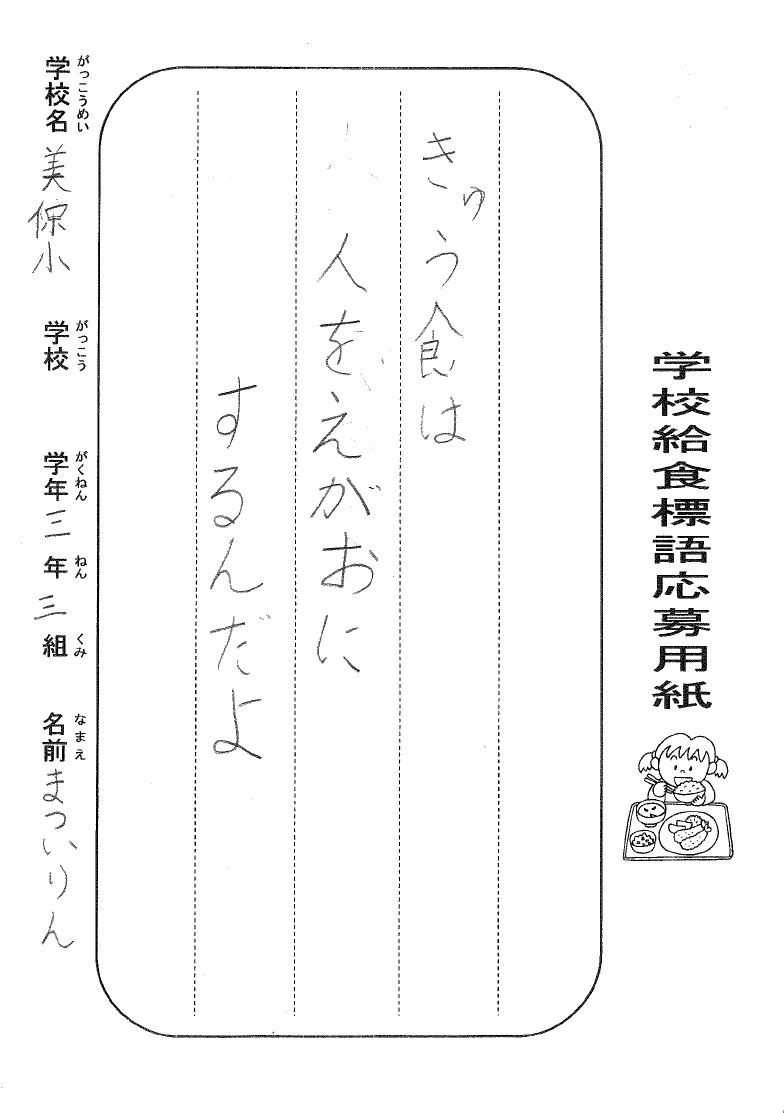 学校給食標語応募用紙
きゅう食は
人をえがおに
するんだよ
学校名 美保小 学校 学年 三 年 三 組 名前 まついりん
がっこうめい がっこう がくねん ねん くみ なまえ